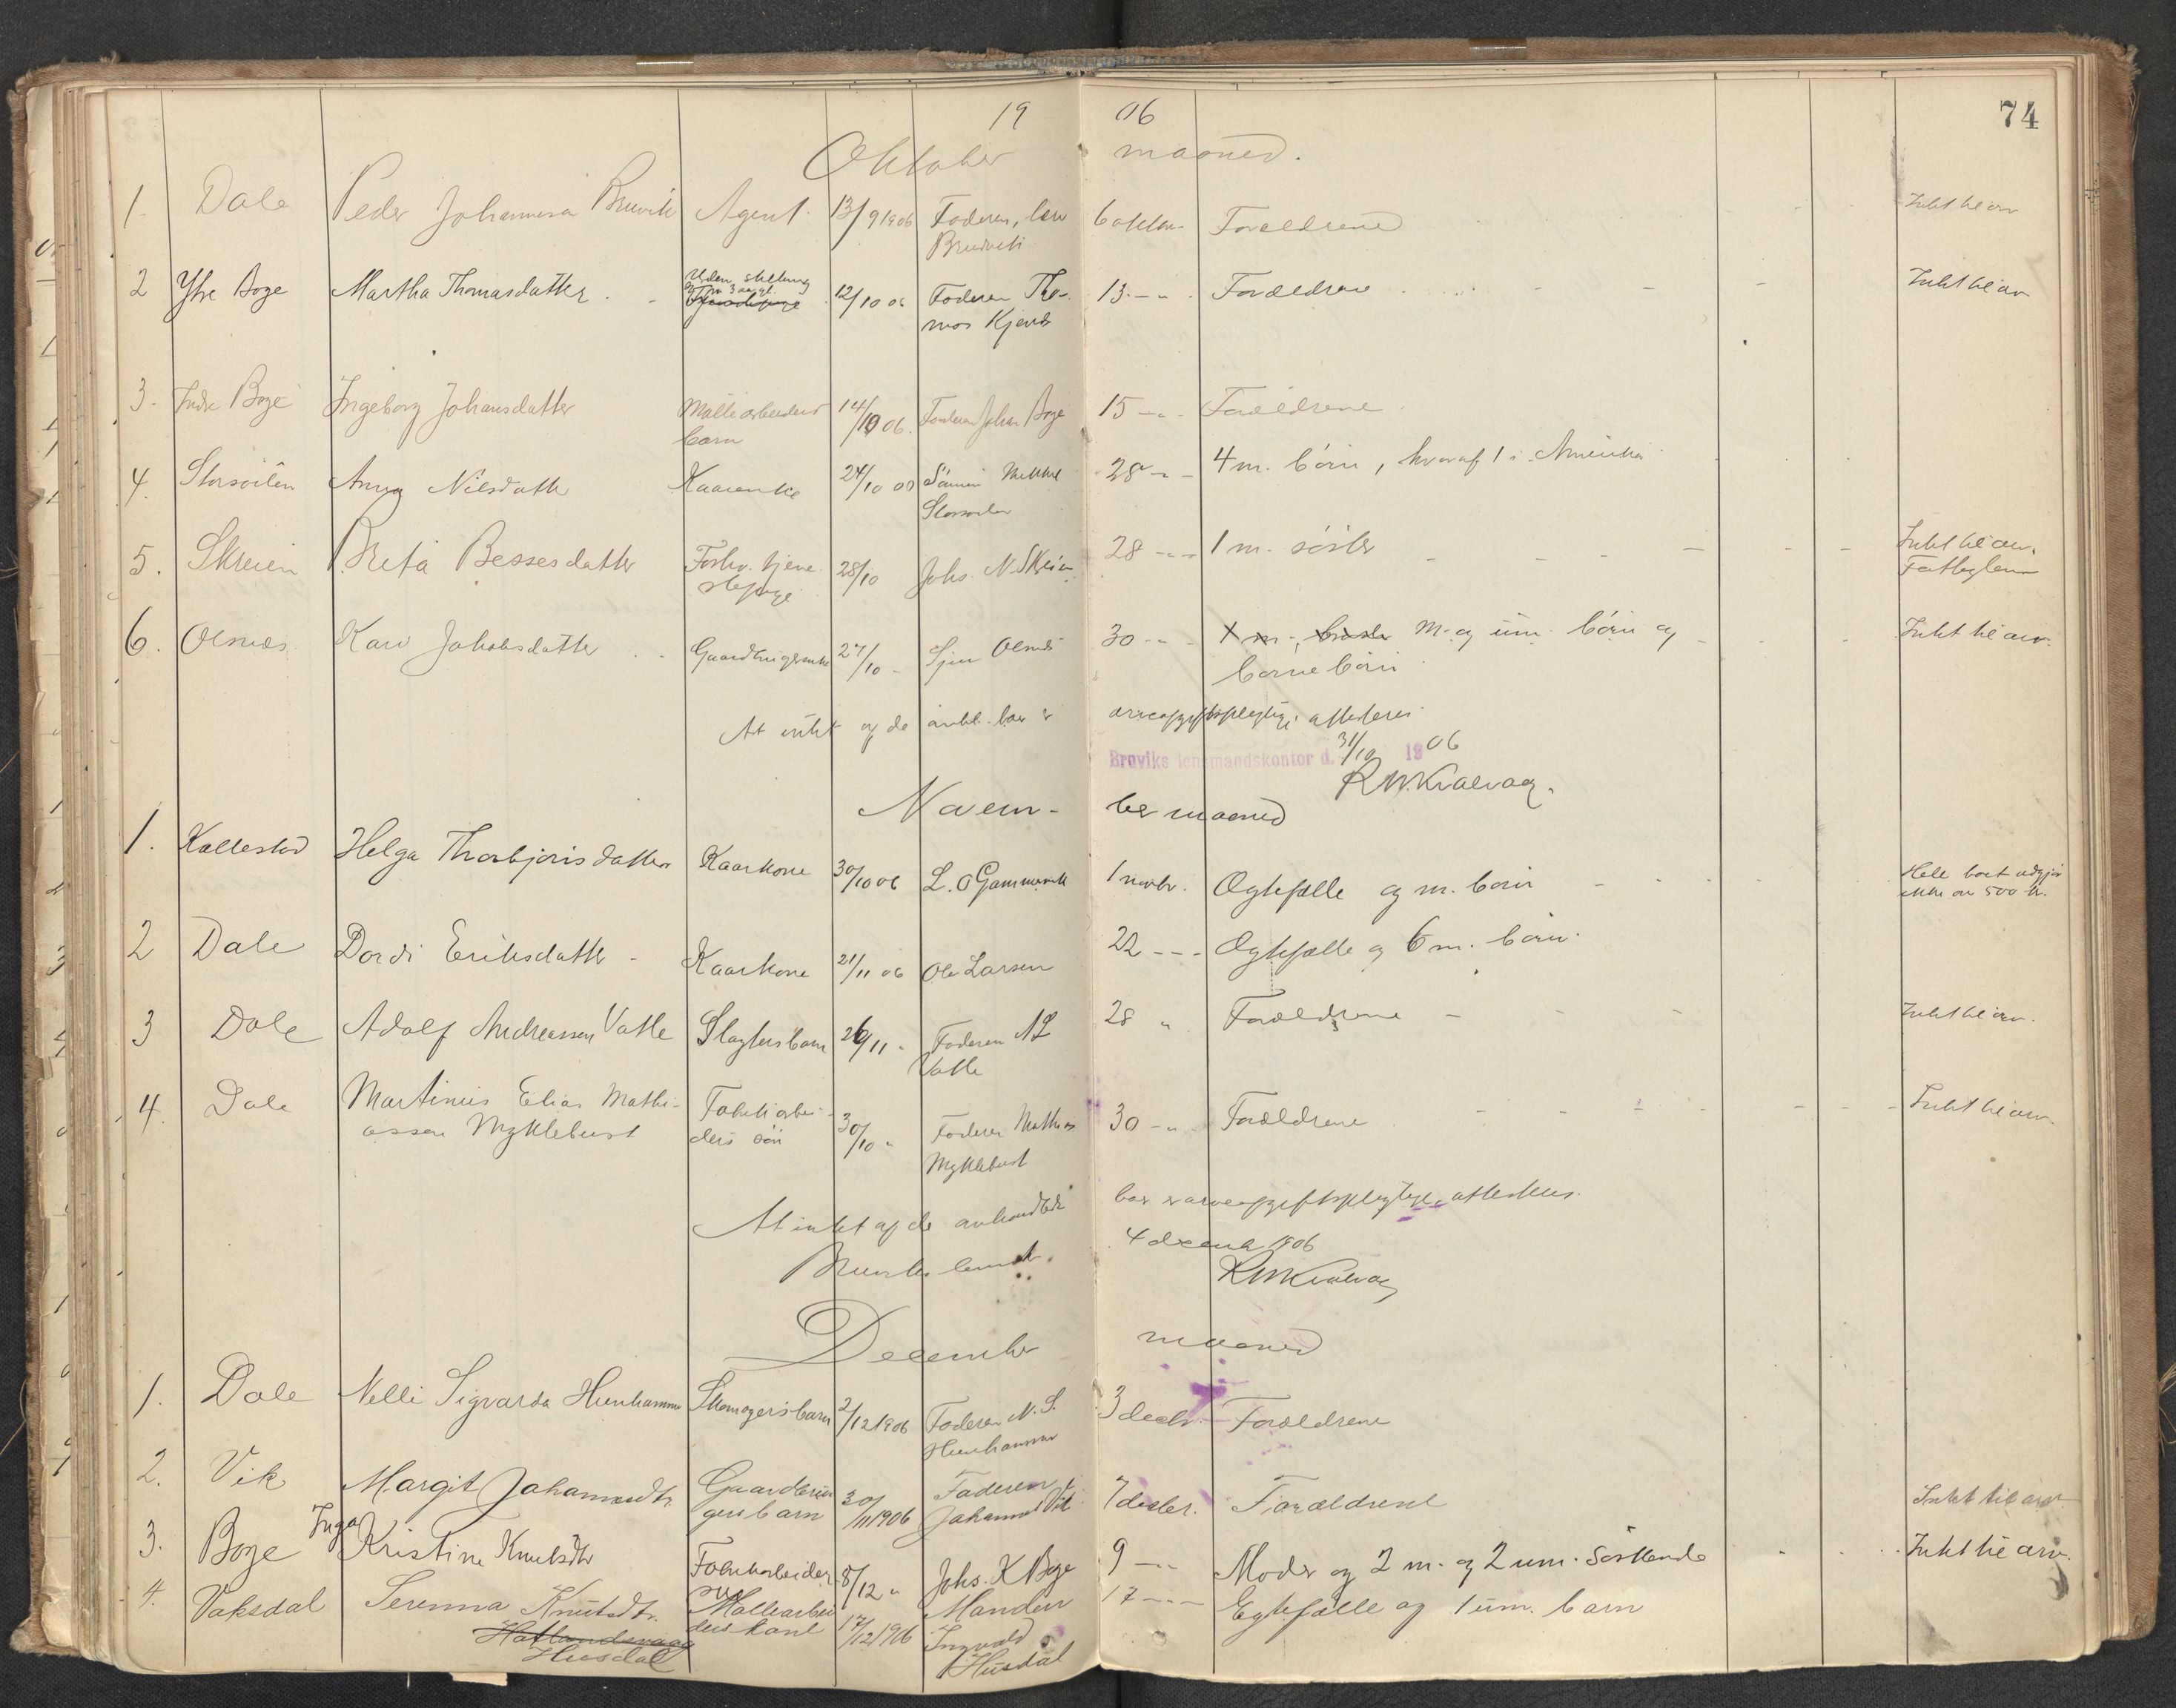 19 06 74
Oktober maaned.
1. Dale Peder Johannesen Bruvik Agent 13/9 1906 Faderen, Bruvik 6 oktbr. Forældrene Intet til arv
2 Ytre Boge Martha Thomasdatter Uden stilling 12/10 06 Faderen Thomas 13 - " - Forældrene Intet til arv
3. Indre Boge Ingeborg Johansdatter Møllearbeiders barn 14/10 06. Faderen Johan Boge 15 - " - Forældrene
4. Storsøilen Anna Nilsdatter Kaarenke 24/10 06 Sønnen Mikkel Storsøilen 28 - " - 4 m. børn, hvoraf 1 i Amerika
5. Skreien Brita Bessesdatter Forhv. tjenestepige 28/10 Johs. N. Skreien 28 - " - 1 m. søster Intet til arv. Fatteglem
6. Olsnes Kari Jakobsdatter Gaardbrugerenke 27/10 - Sjur Olsnes 30 - " - 1 m. M. og um. børn og børnebørn Intet til arv.
At intet af de anm. boer er arveafgiftspligtige attesteres.
Bruviks lensmandskontor d. 31/10 1906
R W Kvalvaag.
Novem- ber maaned
1. Kallestad Helga Thorbjørnsdatter Kaarkone 30/10 06 L. O Gammersvik 1 novbr. Ægtefælle og m. børn Hele boet udgjør ikke over 500 kr.
2 Dale Dordi Eriksdatter - Kaarkone 21/11 06 Ole Larsen 22 - - - Ægtefælle og 6 m. børn.
3 Dale Adolf Andreassen Vatle Slagters barn 26/11 - Faderen A L Vatle 28 " Forældrene - Intet til arv.
4. Dale Martinus Elias Mathiassen Myklebust Fabrikarbeiders søn 30/10 " Faderen Mathias Myklebust 30 - " - Forældrene Intet til arv.
At intet af de anmeldte boer er arveafgiftspligtige, attesteres.
Bruviks lensmd. 4 decemb 1906
R W Kvalvaag
December maaned
1. Dale Nelli Sigvarda Hunhammer Skomagers barn 2/12 1906 Faderen N. S. Hunhammer 3 decbr. Forældrene
2. Vik Margit Johannesdtr. Gaardbrugers barn 30/11 1906 Faderen Johannes Vik 7 decbr. Forældrene Intet til arv
3. Boge Inga Kristine Knutsdtr Fabrikarbeiderske 8/12 " Johs. K Boge 9 - " - Moder og 2 m. og 2 um. søskende Intet til arv.
4. Vaksdal Serenna Knutsdtr. Hatlandsvaag Husdal Møllearbeiders kone 17/12 1906 Manden Ingvald Husdal 17 - - - Egtefælle og 1 um. barn